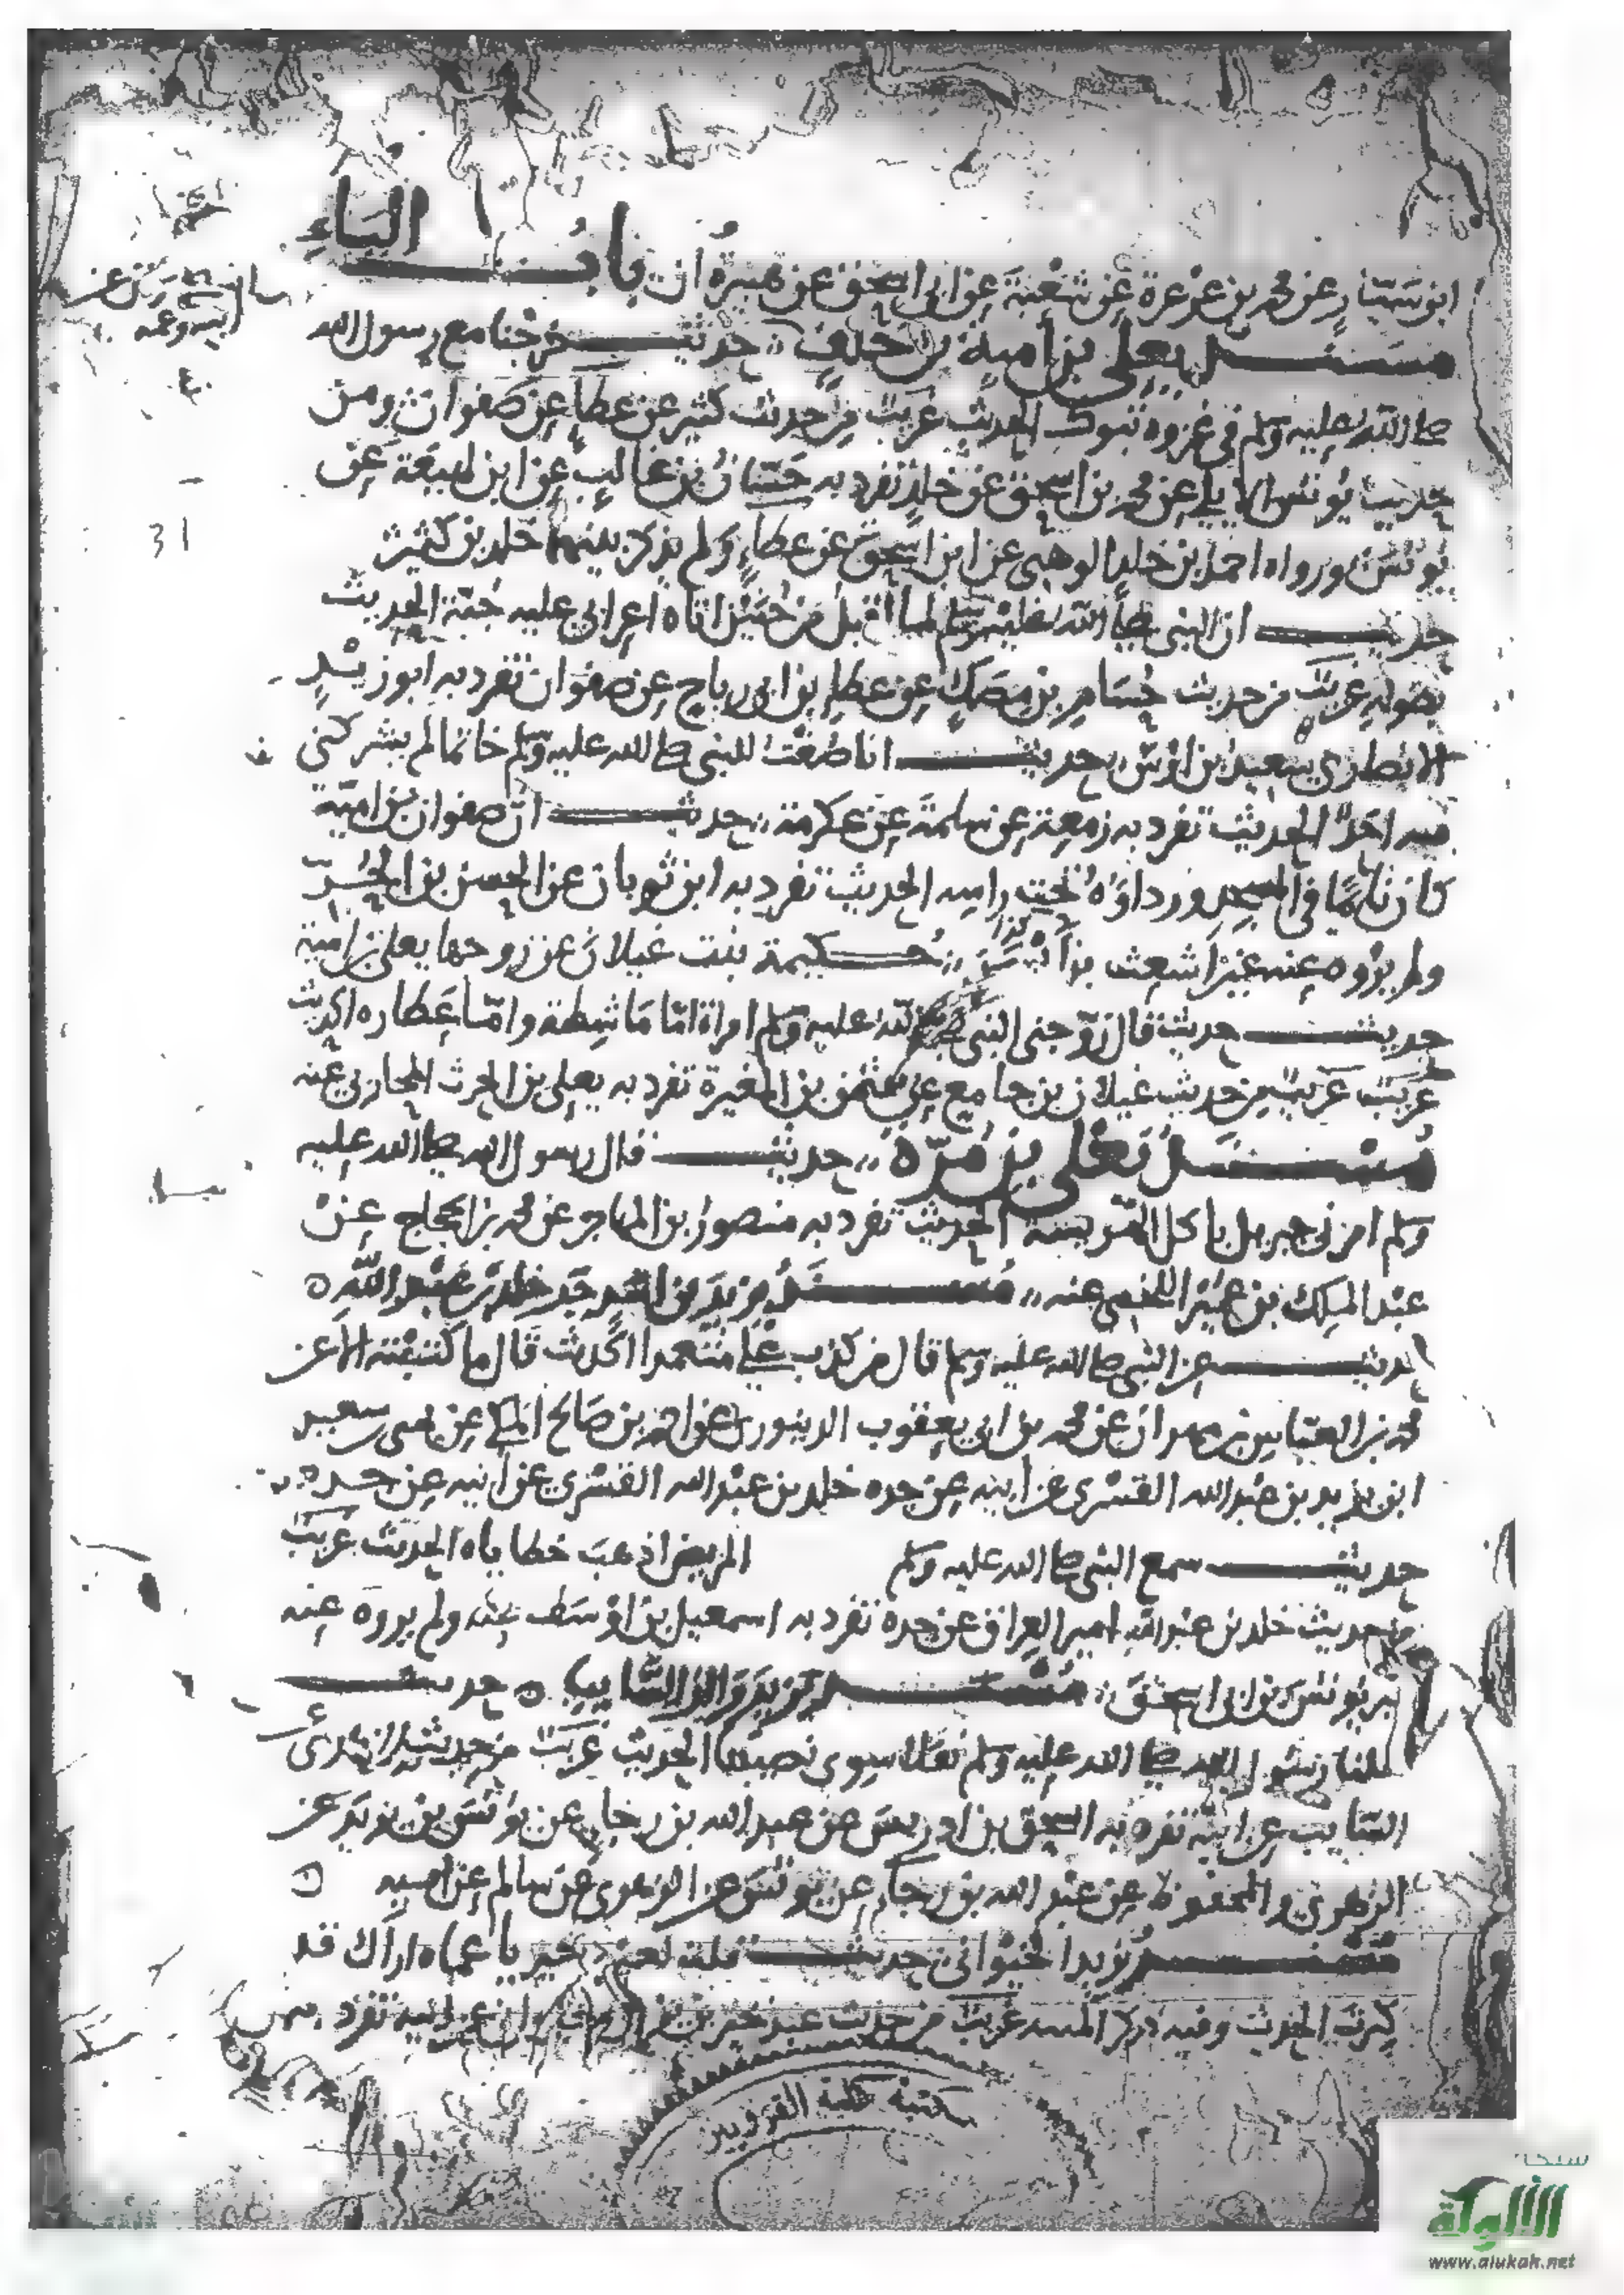 باب الياء
ابن سيار عن محمد بن عرعرة عن شعبة عن ابي اسحق عن هبيرة ان
مسند يعلى بن امية بن خلف حديث خرجنا مع رسول الله
صلى الله عليه وسلم في غزوه تبوك الحديث غريب من حديث كثير عن عطا عن صفوان ومن
حديث يونس الايلي عن محمد بن اسحق عن خلد تفرد به حسان بن غالب عن ابن لهيعة عن
يونس ورواه احمد بن خلد الوهبي عن ابن اسحق عن عطاء ولم يذكر بينهما خلد بن كثير
حديث ان النبي صلى الله عليه وسلم لما اقبل من حنين اتاه اعرابي عليه جبة الحديث
بطوله غريب من حديث حسام بن مصك عن عطاء بن ابي رباح عن صفوان تفرد به ابو زيد
الانصاري سعيد بن اوس حديث انا صغت للنبي صلى الله عليه وسلم خاتما لم يشركني
فيه احد الحديث تفرد به زمعة عن سلمة عن عكرمة حديث ان صفوان بن امية
كان نائما في المسجد ورداؤه تحت راسه الحديث تفرد به ابن ثوبان عن الحسن بن الحر
ولم يروه عنه غير اشعث بن حكيمة بنت غيلان عن زوجها يعلى بن امية
حديث حديث قال زوجني النبي صلى الله عليه وسلم امراة اما ماشطة واما عطاره الحديث
غريب غريب من حديث غيلان بن جامع عن عثمن بن المغيرة تفرد به يعلى بن الحرث المحاربي عنه
مسند يعلى بن مرة حديث قال رسول الله صلى الله عليه
وسلم امرني جبريل الحديث تفرد به منصور بن المهاجر عن محمد بن الحجاج عن
عبد الملك بن عمير اللخمي عنه مسند يزيد بن اسد جد خلد بن عبد الله
الحديث عن النبي صلى الله عليه وسلم قال من كذب علي متعمدا الحديث قال ما كتبته الا عن
محمد بن العباس بن مهران عن محمد بن ابي يعقوب الدينوري عن احمد بن صالح المكي عن سعيد
ابن يزيد بن عبد الله القسري عن ابيه عن جده خلد بن عبد الله القسري عن ابيه عن جده
حديث سمع النبي صلى الله عليه وسلم المريض اذهب خطاياه الحديث غريب
من حديث خلد بن عبد الله امير العراق عن جده تفرد به اسمعيل بن اوسط عنه ولم يروه عنه
غير يونس بن ابي اسحق مسند يزيد والد السايب حديث
نفلنا رسول الله صلى الله عليه وسلم نفلا سوى نصيبنا الحديث غريب من حديث الزهري
السايب عن ابيه تفرد به اسحق بن ادريس عن عبد الله بن رجاء عن يونس بن يزيد عن
الزهري والمحفوظ عن عبد الله بن رجاء عن يونس عن الزهري عن سالم عن ابيه
مسند يزيد الخيواني حديث قلت لعبد خير يا عماه اراك قد
كبرت الحديث وفيه ذكر غريب من حديث عبد خير عن ابيه تفرد به
31
مكتبة كلية القرويين
شبكة
الألوكة
www.alukah.net